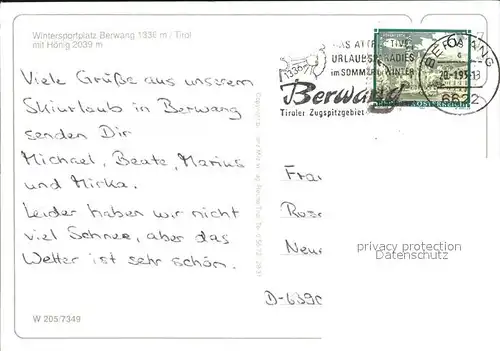 Wintersportplatz Berwang 1336 m / Tirol
mit Hönig 2039 m
Viele Grüße aus unserem
Skiurlaub in Berwang
senden Dir
Michael, Beate, Marius
und Mirka.
Leider haben wir nicht
viel Schnee, aber das
Wetter ist sehr schön.
W 205/7349
DAS ATTRAKTIVE
URLAUBSPARADIES
im SOMMER u. WINTER
1336m
Berwang
Tiroler Zugspitzgebiet
BERWANG
20.-1.93-13
6622
Frau
Neu
privacy protection
Datenschutz
D-6390